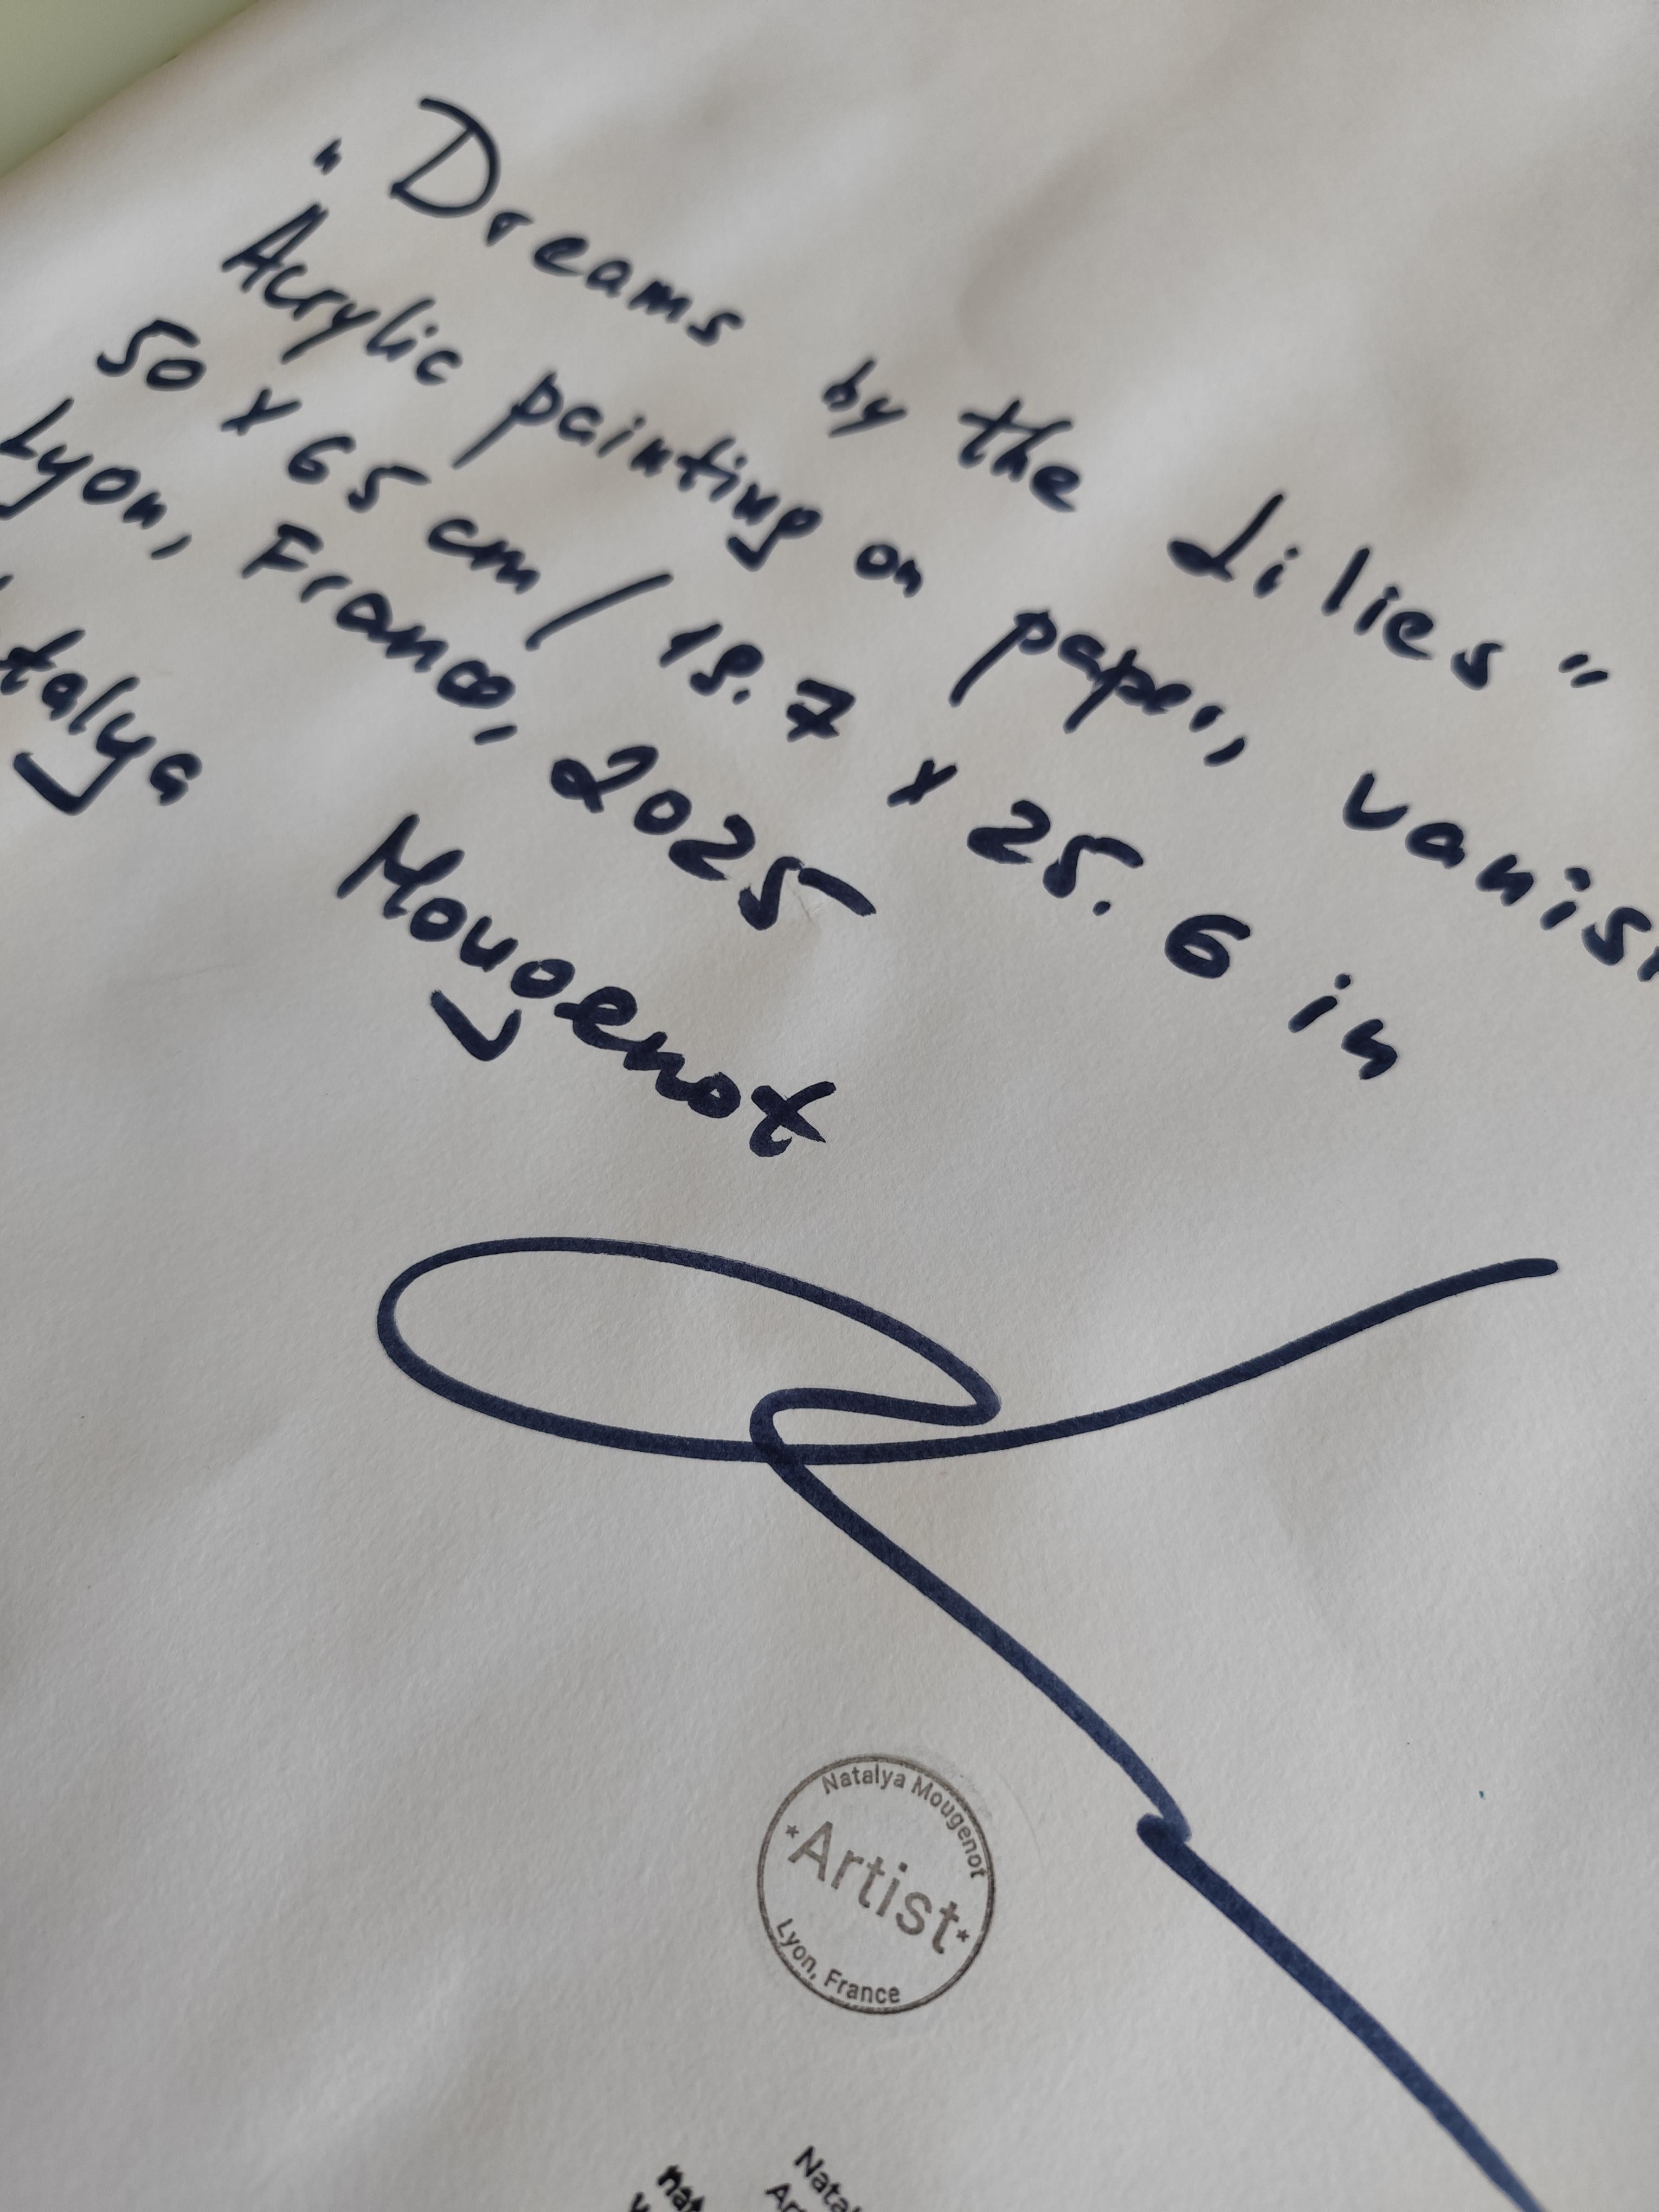 "Dreams by the Lilies"
Acrylic painting on paper, vanis
50 x 65 cm / 19.7 x 25.6 in
Lyon, France, 2025
talya Mougenot
Natalya Mougenot
*Artist*
Lyon, France
Natal
nat